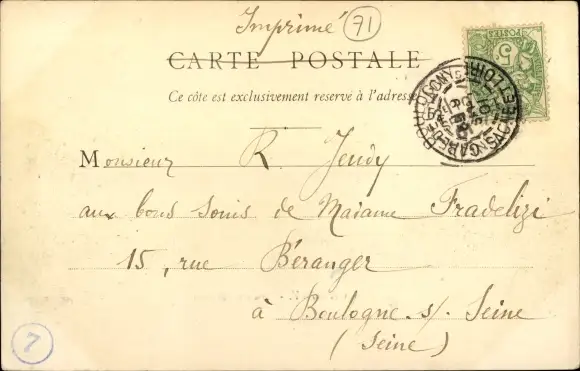 Imprimé
71
CARTE POSTALE
Ce côté est exclusivement reservé à l'adresse
POSTES
5
Monsieur R Jeudy
aux bons soins de Madame Fradelizi
15, rue Béranger
à Boulogne s/ Seine
(Seine)
7